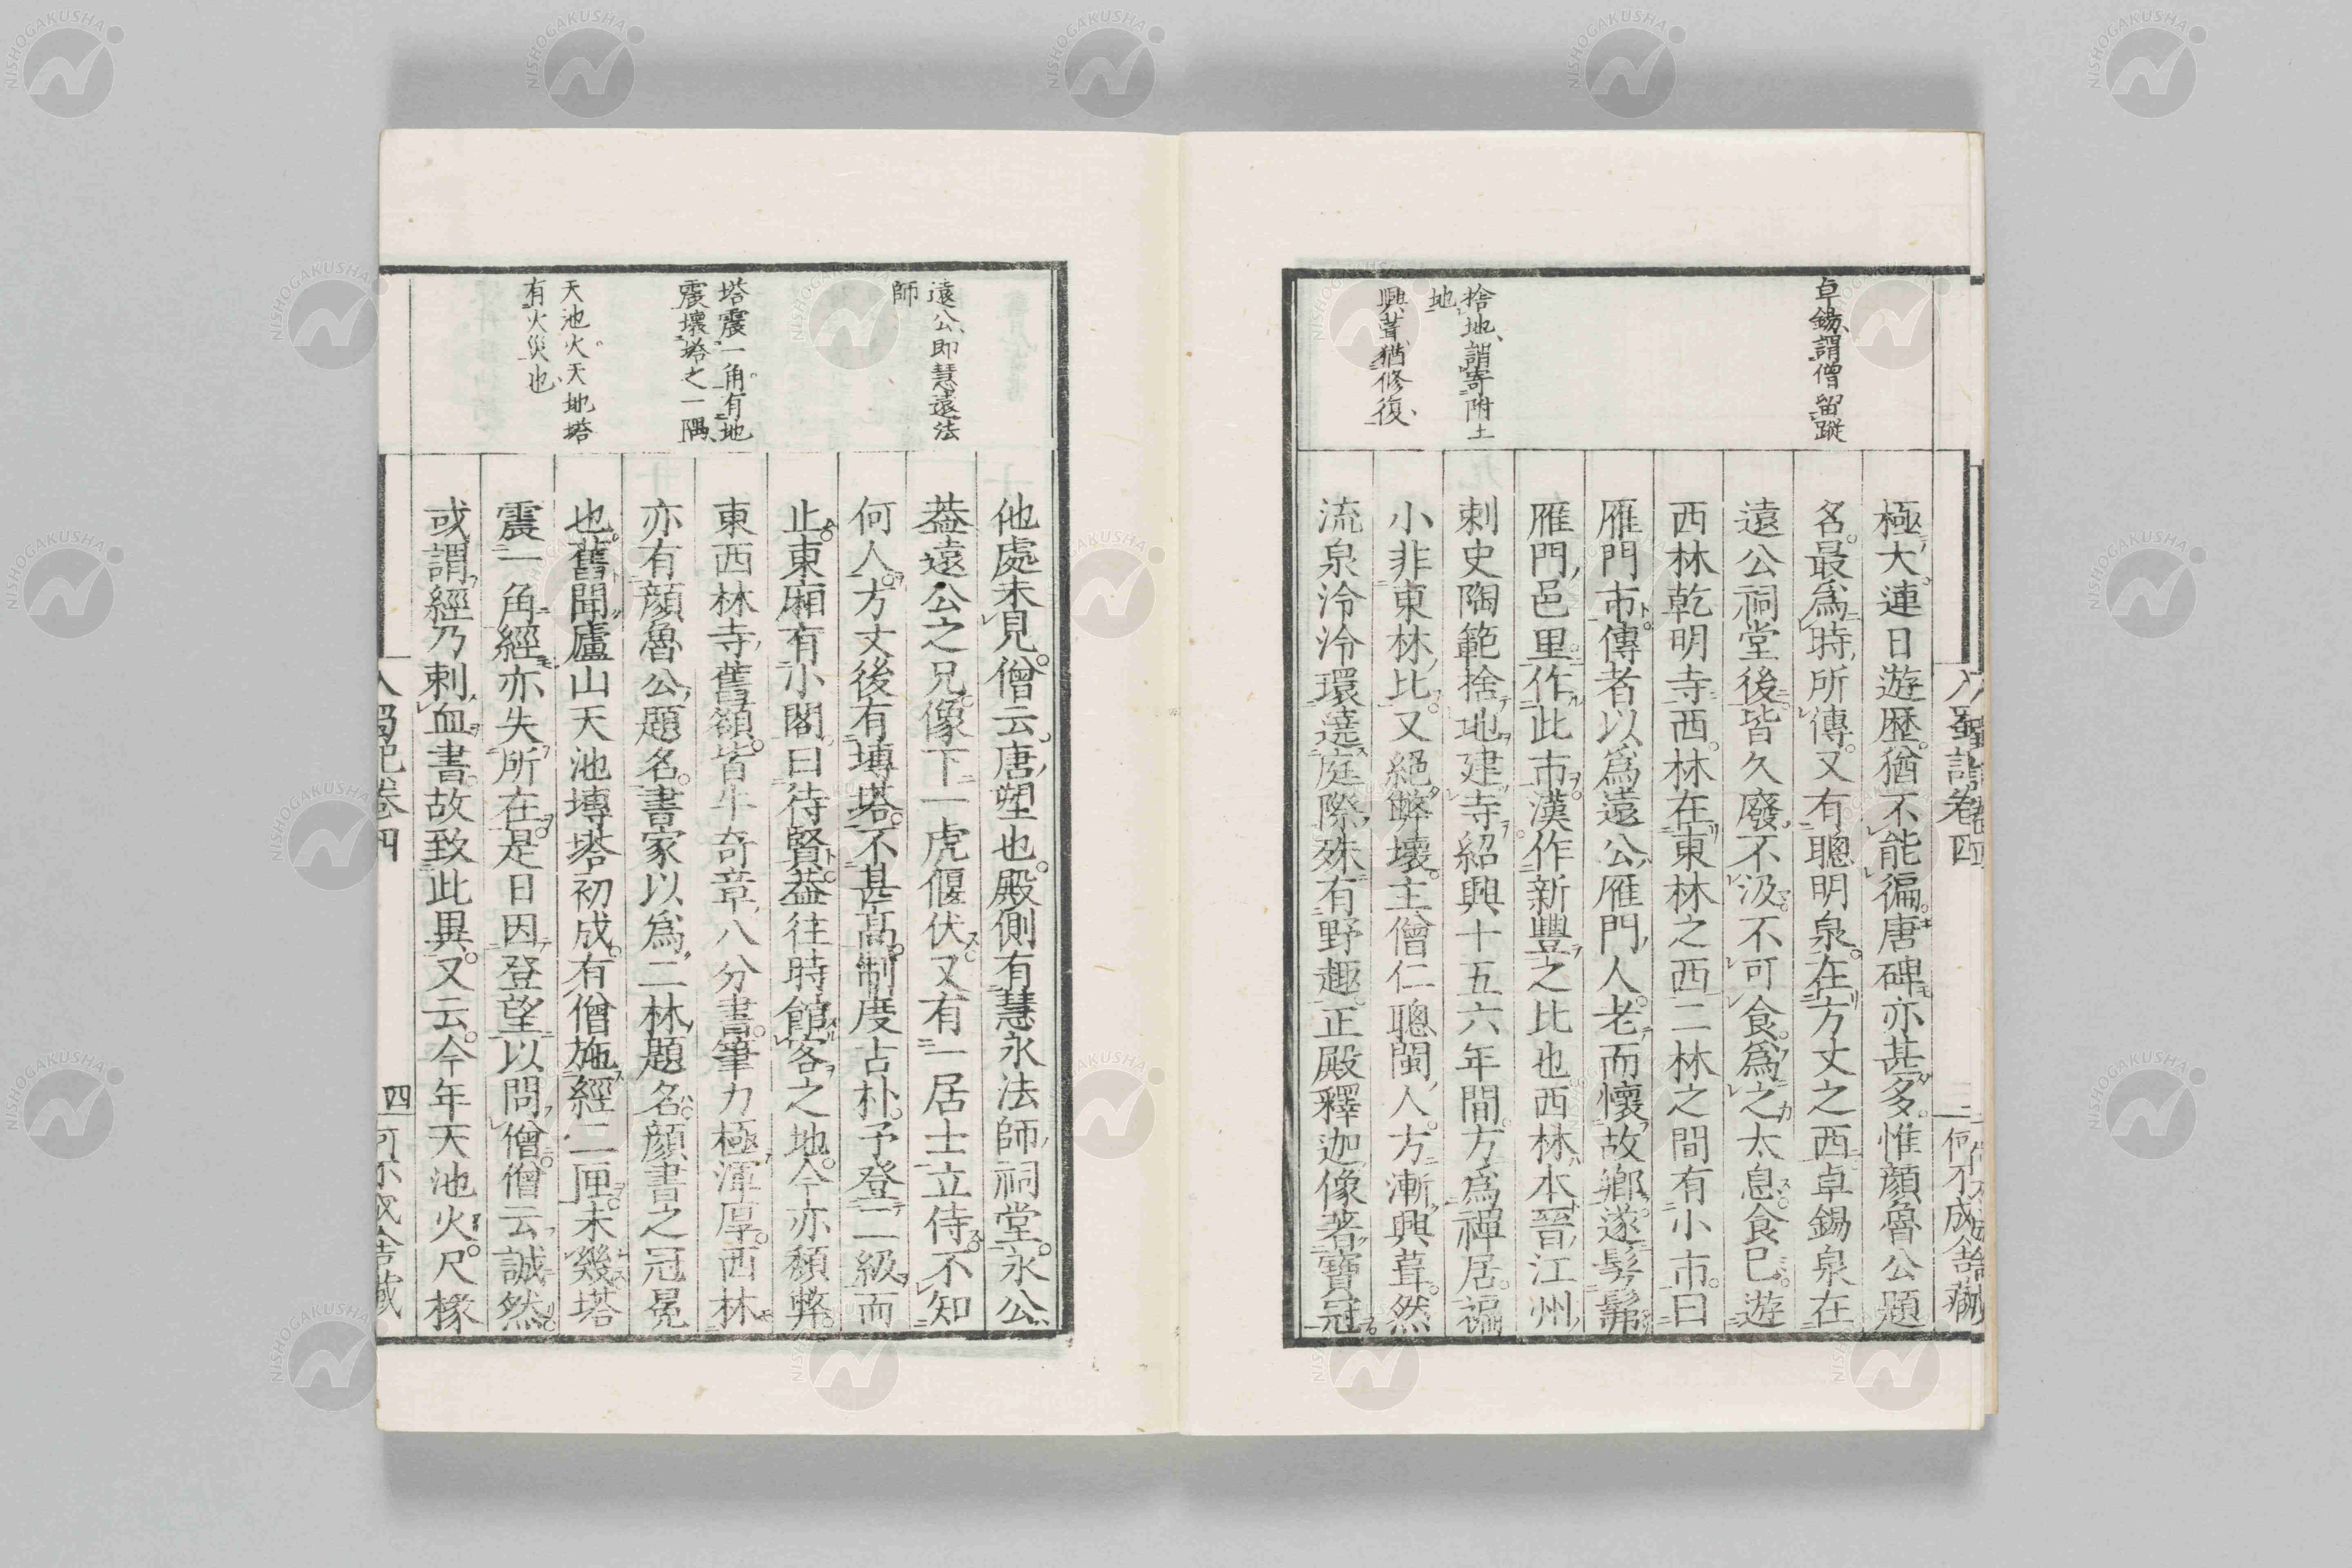 卓錫、謂僧留蹤
捨地、謂寄附土
地、
興葺、猶修復、
極大。連日遊歷。猶不能徧。唐碑亦甚多。惟顔魯公題
名。最爲時所傳。又有聰明泉。在方丈之西。卓錫泉在
遠公祠堂後。皆久廢。不汲不可食。爲之太息。食已。遊
西林乾明寺。西林在東林之西。二林之間有小市。曰
雁門市。傳者以爲遠公雁門人。老而懷故鄉。遂髣髴
雁門邑里。作此市。漢作新豐之比也。西林本晉江州
刺史陶範捨地建寺。紹興十五六年間。方爲禪居。褊
小非東林比。又絕弊壞。主僧仁聰閩人。方漸興葺。然
流泉泠泠環遶庭際。殊有野趣。正殿釋迦像著寶冠
蜀記卷四
三
何不成舍藏
遠公、即慧遠法
師
塔震一角。有地
震壞塔之一隅、
天池火。天地塔
有火災也、
他處未見。僧云。唐塑也。殿側有慧永法師祠堂。永公
葢遠公之兄。像下一虎偃伏。又有一居士立侍。不知
何人。方丈後有塼塔。不甚高。制度古朴。予登二級而
止。東廂有小閣。曰待賢。葢往時館客之地。今亦頹弊。
東西林寺舊額。皆牛奇章八分書。筆力極渾厚。西林
亦有顔魯公題名。書家以爲二林題名。顔書之冠冕
也。舊聞廬山天池塼塔初成。有僧施經二匣。未幾塔
震一角。經亦失所在。是日因登望以問僧。僧云。誠然。
或謂經乃刺血書。故致此異。又云。今年天池火。尺椽
蜀記卷四
四
何不成舍藏